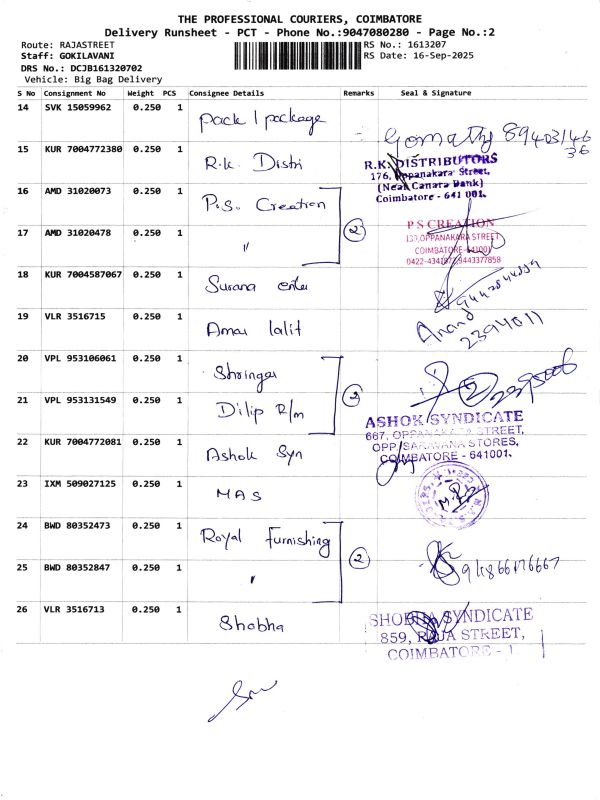 THE PROFESSIONAL COURIERS, COIMBATORE
Delivery Runsheet - PCT - Phone No.:9047080280 - Page No.:2
Route: RAJASTREET
RS No.: 1613207
Staff: GOKILAVANI
RS Date: 16-Sep-2025
DRS No.: DCJB161320702
Vehicle: Big Bag Delivery
S No Consignment No Weight PCS Consignee Details Remarks Seal & Signature
14 SVK 15059962 0.250 1 Pack 1 package
Gomathy
15 KUR 7004772380 0.250 1 R.K. Distri
R.K. DISTRIBUTORS
176, Oppanakara Street,
(Near Canara Bank)
Coimbatore - 641 001.
16 AMD 31020073 0.250 1 P.S. Creation
2
P S CREATION
COIMBATORE-641001
17 AMD 31020478 0.250 1 "
18 KUR 7004587067 0.250 1 Surana enter
19 VLR 3516715 0.250 1 Amar lalit
Anand
2394011
20 VPL 953106061 0.250 1 Shringar
2
2
21 VPL 953131549 0.250 1 Dilip R/m
ASHOK SYNDICATE
667, OPPANAKARA STREET,
OPP/SARAVANA STORES,
COIMBATORE - 641001.
22 KUR 7004772081 0.250 1 Ashok Syn
23 IXM 509027125 0.250 1 MAS
24 BWD 80352473 0.250 1 Royal Furnishing
2
25 BWD 80352847 0.250 1 "
26 VLR 3516713 0.250 1 Shobha
SHOBHA SYNDICATE
859, RAJA STREET,
COIMBATORE - 1